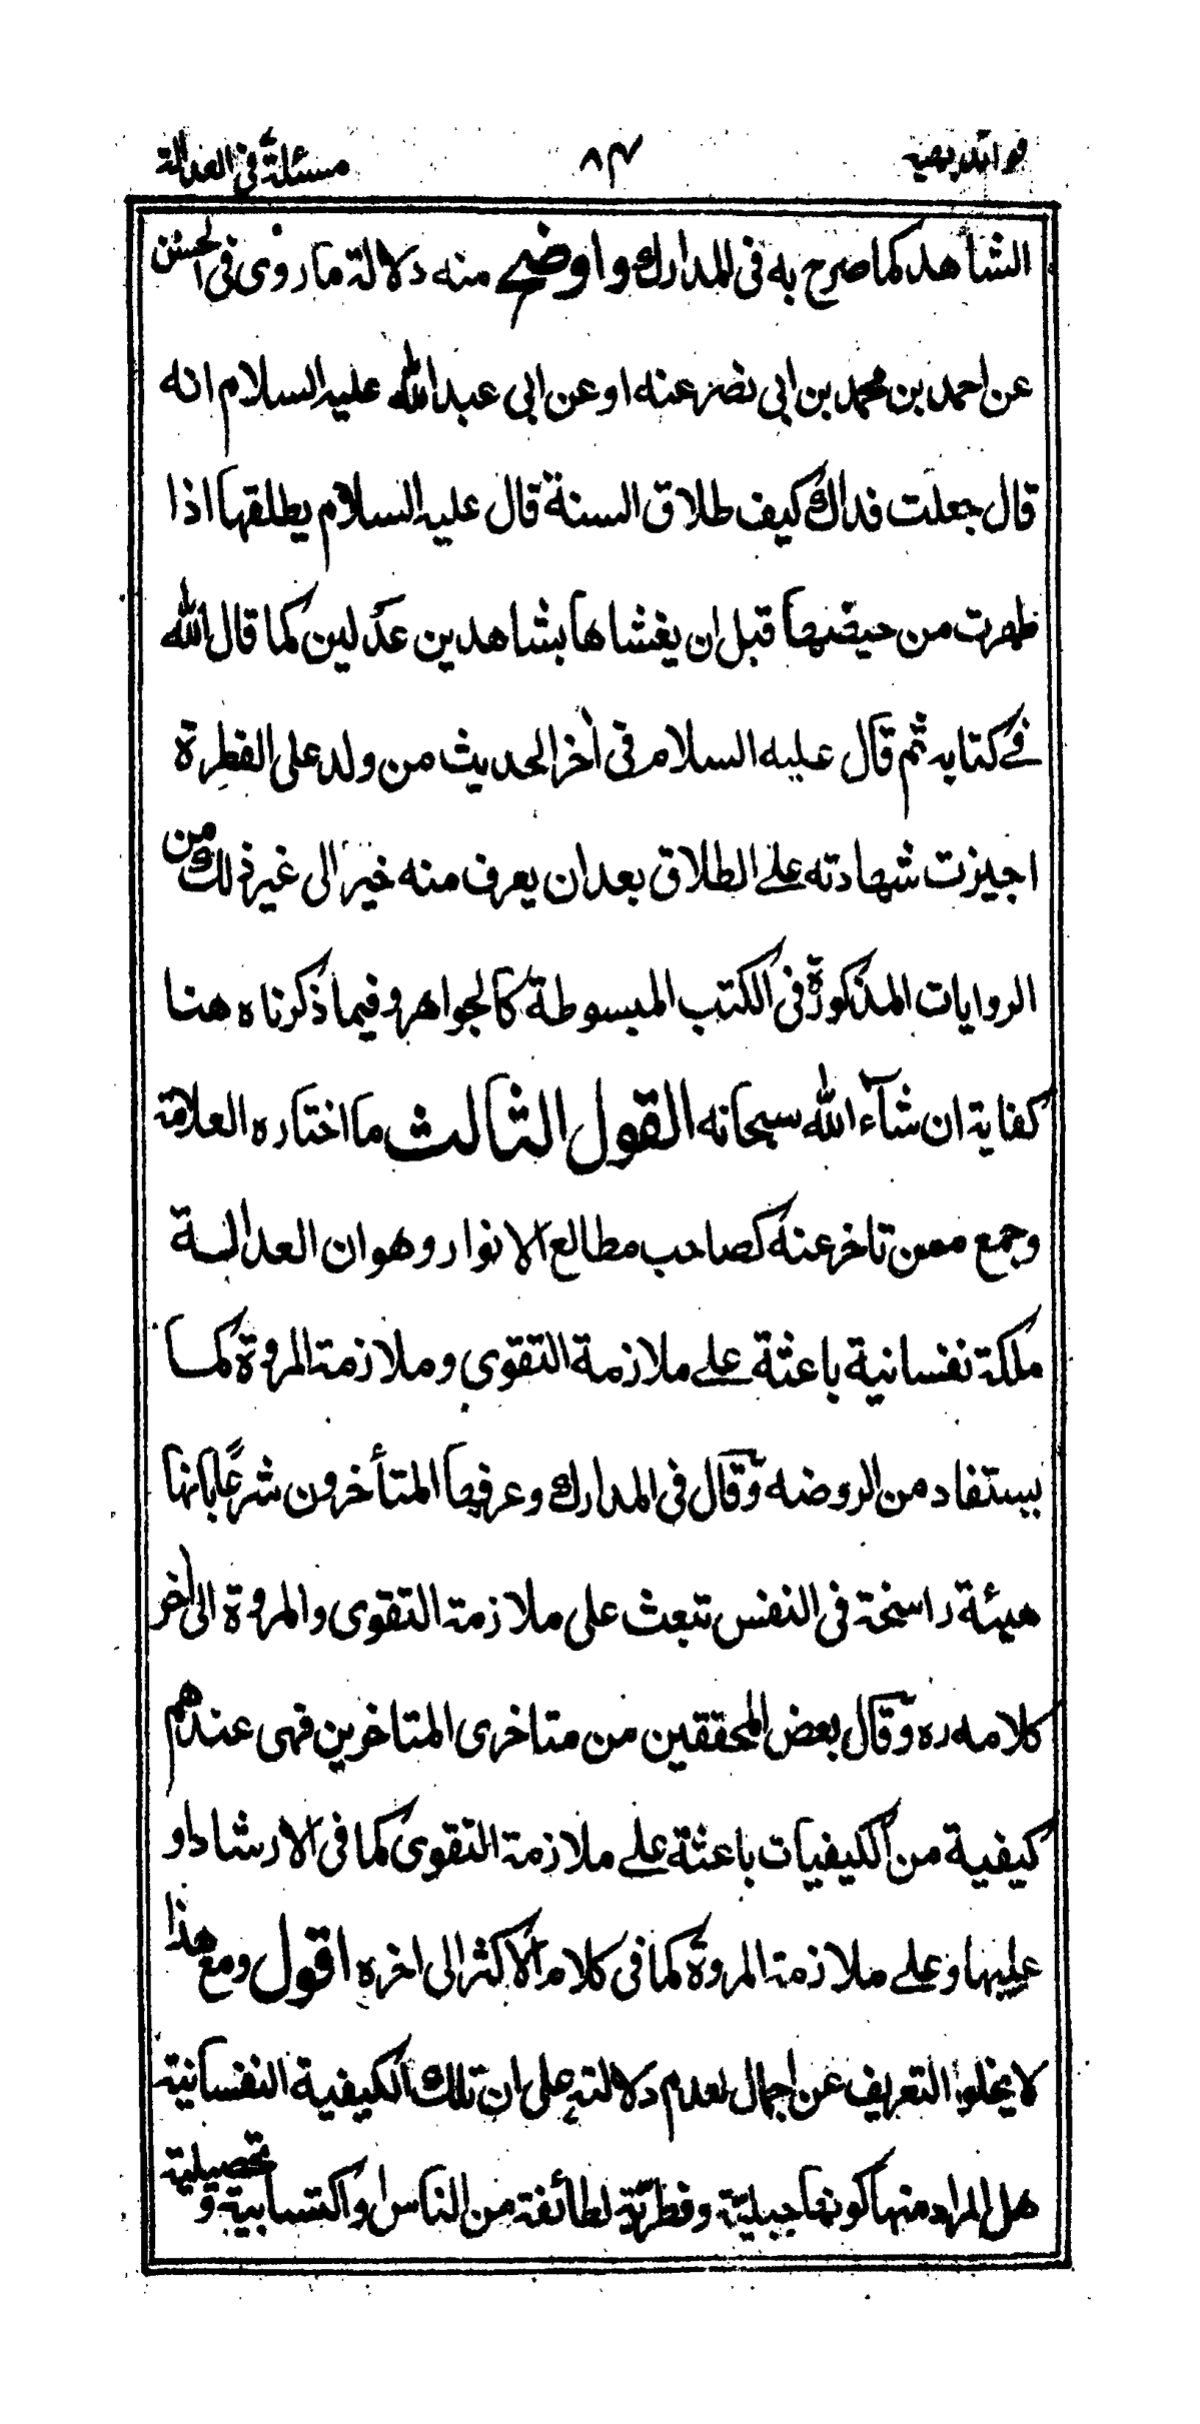 فوائد بهيه ٨٤ مسئلة في العدالة
الشاهد كما صرح به فى المدارك واوضح منه دلالة ما روى فى الحسن
عن احمد بن محمد بن ابى نصر عنه او عن ابى عبد الله عليه السلام انه
قال جعلت فداك كيف طلاق السنة قال عليه السلام يطلقها اذا
طهرت من حيضها قبل ان يغشاها بشاهدين عدلين كما قال الله
فے كتابه ثم قال عليه السلام فى اخر الحديث من ولد على الفطرة
اجيزت شهادته علے الطلاق بعد ان يعرف منه خير الى غير ذلك من
الروايات المذكورة فى الكتب المبسوطة كالجواهر وفيما ذكرناه هنا
كفاية ان شآء الله سبحانه القول الثالث ما اختاره العلامة
وجمع ممن تاخر عنه كصاحب مطالع الانوار وهو ان العدالة
ملكة نفسانية باعثة علے ملازمة التقوى وملازمة المروة كما
يستفاد من الروضه وقال فى المدارك وعرفها المتأخرون شرعًا بانها
هيئة راسخة فى النفس تبعث على ملازمة التقوى والمروة الى اخر
كلامه ره وقال بعض المحققين من متاخرى المتاخرين فهى عندهم
كيفية من الكيفيات باعثة علے ملازمة التقوى كما فى الارشاد او
عليها وعلے ملازمة المروة كما فى كلام الاكثر الى اخره اقول ومع هذا
لا يخلوا التعريف عن اجمال لعدم دلالته على ان تلك الكيفية النفسانية
هل المراد منها كونها جبلية وفطرية لطائفة من الناس او اكتسابية و تحصيلية